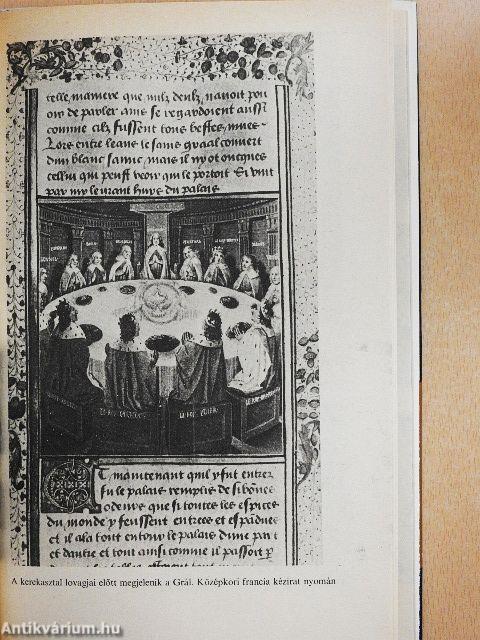 telle maniere que nulz deulz nauoit pou
oir de parler ains se regardoient aussi
comme cilz fussent tous bestes mues
Lors entre leans le saint graal couuert
dun blanc samit, mais il ny ot oncques
cellui qui peust veoir qui le portoit Si vint
par my le grant huys du palais
T maintenant quil y fut entre
fu le palais remplis de si bonne
odeure que si toutes les espices
du monde y feussent entrees et espandues
et il ala tout entour le palais dune part
et dautre et tout ainsi comme il passoit p
A kerekasztal lovagjai előtt megjelenik a Grál. Középkori francia kézirat nyomán
Antikvárium.hu